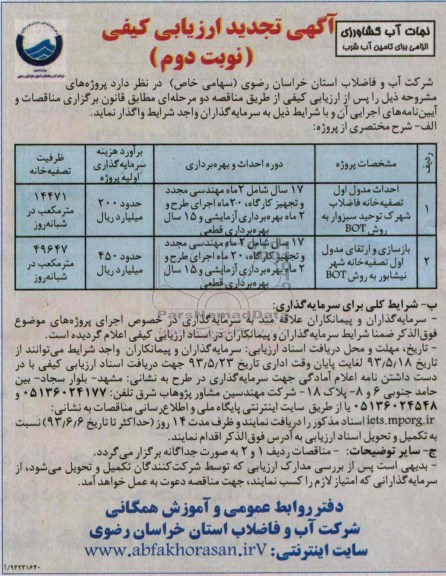 نجات آب کشاورزی
الزامی برای تامین آب شرب
آگهی تجدید ارزیابی کیفی
(نوبت دوم)
شرکت آب و فاضلاب استان خراسان رضوی (سهامی خاص) در نظر دارد پروژه‌های
مشروحه ذیل را پس از ارزیابی کیفی از طریق مناقصه دو مرحله‌ای مطابق قانون برگزاری مناقصات و
آیین‌نامه‌های اجرایی آن و با شرایط ذیل به سرمایه‌گذاران واجد شرایط واگذار نماید.
الف- شرح مختصری از پروژه:
ردیف
مشخصات پروژه
دوره احداث و بهره‌برداری
برآورد هزینه
سرمایه‌گذاری
اولیه پروژه
ظرفیت
تصفیه‌خانه
۱
احداث مدول اول
تصفیه‌خانه فاضلاب
شهرک توحید سبزوار به
روش BOT
۱۷ سال شامل ۲ماه مهندسی مجدد
و تجهیز کارگاه، ۲۰ماه اجرای طرح و
۲ ماه بهره‌برداری آزمایشی و ۱۵ سال
بهره‌برداری قطعی
حدود ۲۰۰
میلیارد ریال
۱۴۴۷۱
مترمکعب در
شبانه‌روز
۲
بازسازی و ارتقای مدول
اول تصفیه‌خانه شهر
نیشابور به روش BOT
۱۷ سال شامل ۲ ماه مهندسی مجدد
و تجهیز کارگاه، ۲۰ ماه اجرای طرح و
۲ ماه بهره‌برداری آزمایشی و ۱۵ سال
بهره‌برداری قطعی
حدود ۴۵۰
میلیارد ریال
۴۹۶۴۷
مترمکعب در
شبانه‌روز
ParsNamadData
ب- شرایط کلی برای سرمایه‌گذاری:
- سرمایه‌گذاران و پیمانکاران علاقه مند به سرمایه‌گذاری در خصوص اجرای پروژه‌های موضوع
فوق‌الذکر ضمنا شرایط سرمایه‌گذاران و پیمانکاران در اسناد ارزیابی کیفی اعلام گردیده است.
- تاریخ، مهلت و محل دریافت اسناد ارزیابی: سرمایه‌گذاران و پیمانکاران واجد شرایط می‌توانند از
تاریخ ۹۳/۵/۱۸ لغایت پایان وقت اداری تاریخ ۹۳/۵/۲۳ جهت دریافت اسناد ارزیابی کیفی با در
دست داشتن نامه اعلام آمادگی جهت سرمایه‌گذاری در طرح به نشانی: مشهد- بلوار سجاد- بین
حامد جنوبی ۶ و ۸- پلاک ۱۸- شرکت مهندسین مشاور پژوهاب شرق تلفن: ۰۵۱۳۶۰۲۴۱۷۷ و
۰۵۱۳۶۰۲۴۵۴۸ یا از طریق سایت اینترنتی پایگاه ملی و اطلاع‌رسانی مناقصات به نشانی:
iets.mporg.ir اسناد مذکور را دریافت نمایند و ظرف مدت ۱۴ روز (حداکثر تا تاریخ ۹۳/۶/۶) نسبت
به تکمیل و تحویل اسناد ارزیابی به آدرس فوق‌الذکر اقدام نمایند.
ج- سایر توضیحات: - مناقصات ردیف ۱ و ۲ به صورت جداگانه برگزار می‌گردد.
- بدیهی است پس از بررسی مدارک ارزیابی که توسط شرکت‌کنندگان تکمیل و تحویل می‌شود، از
سرمایه‌گذارانی که امتیاز لازم را کسب نمایند، جهت مناقصه دعوت به عمل خواهد آمد.
دفتر روابط عمومی و آموزش همگانی
شرکت آب و فاضلاب استان خراسان رضوی
سایت اینترنتی: www.abfakhorasan.ir۷